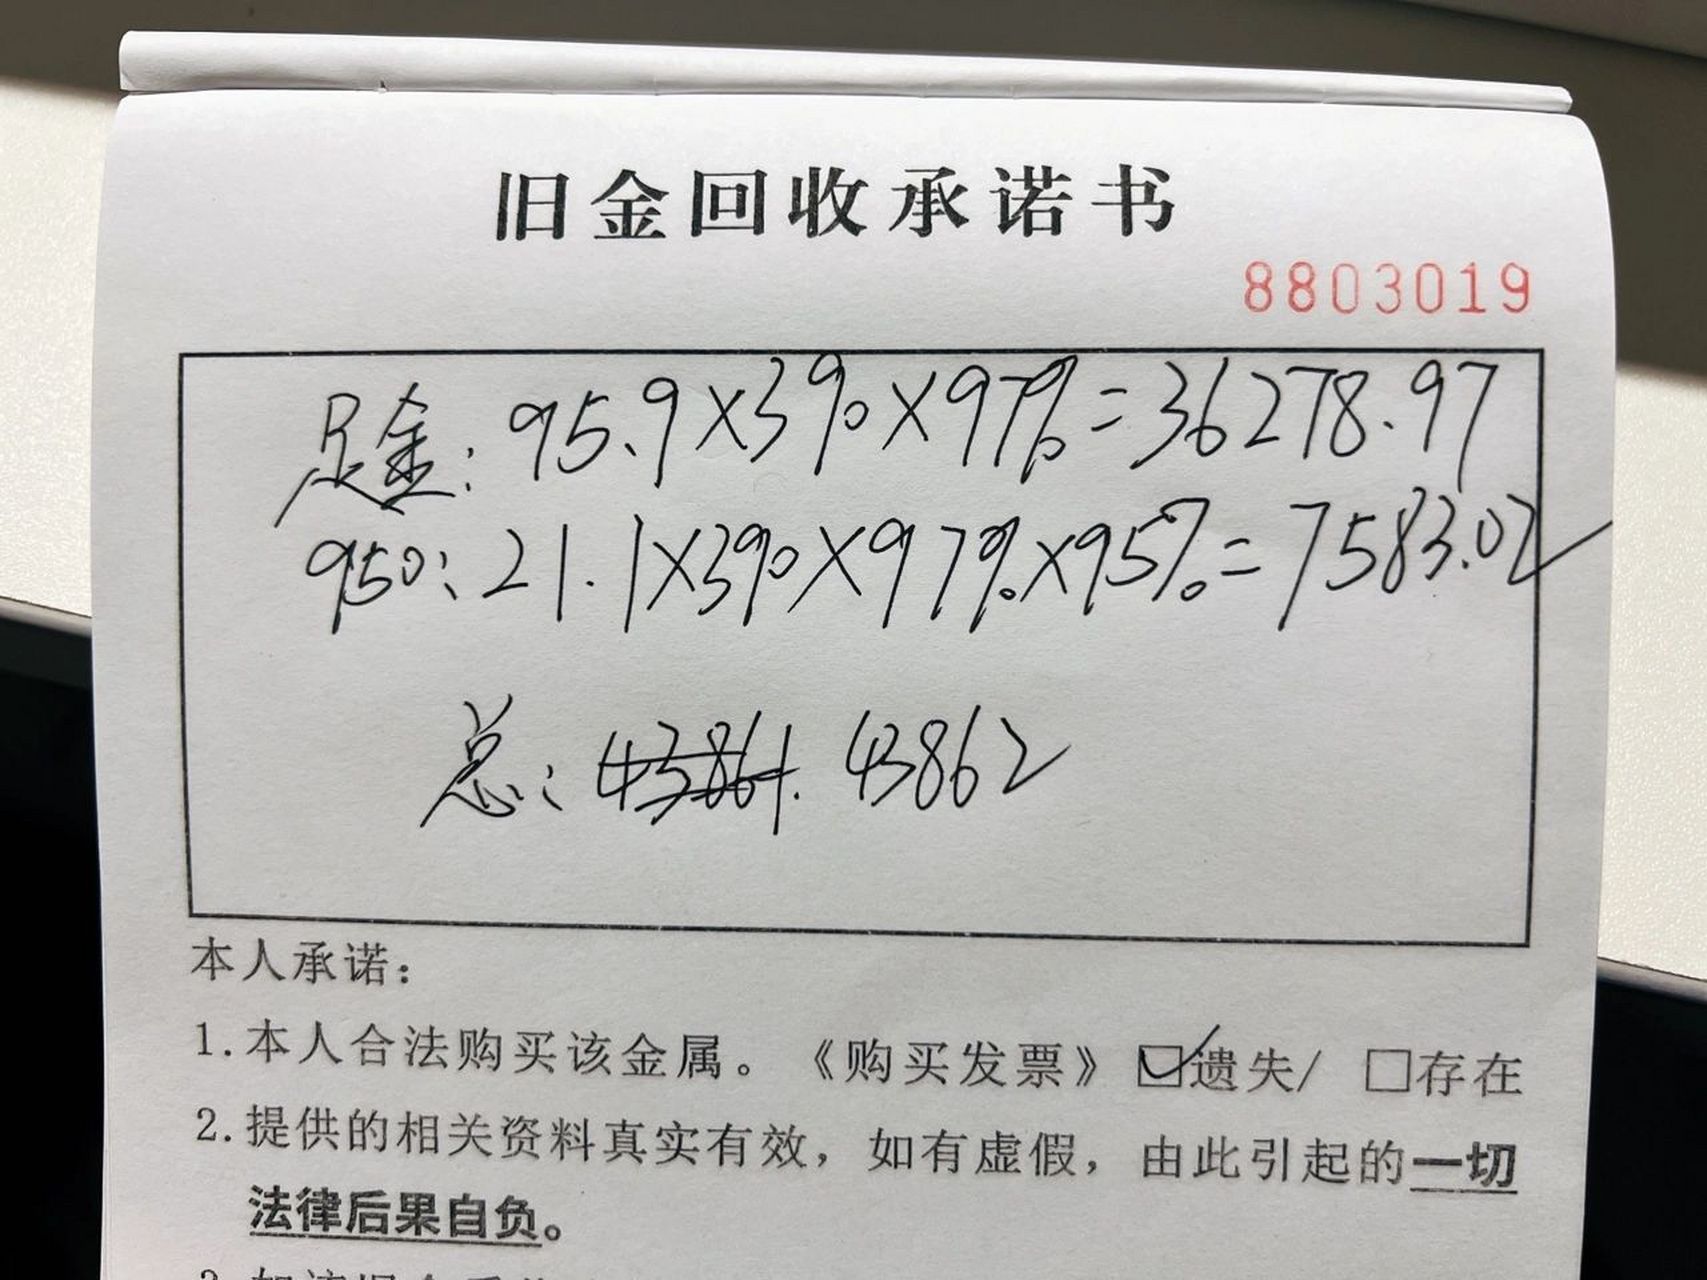 旧金回收承诺书
8803019
足金：95.9×390×97%=36278.97
950：21.1×390×97%×95%=7583.02
总：43861. 43862
本人承诺：
1.本人合法购买该金属。《购买发票》☑遗失/ □存在
2.提供的相关资料真实有效，如有虚假，由此引起的一切
法律后果自负。